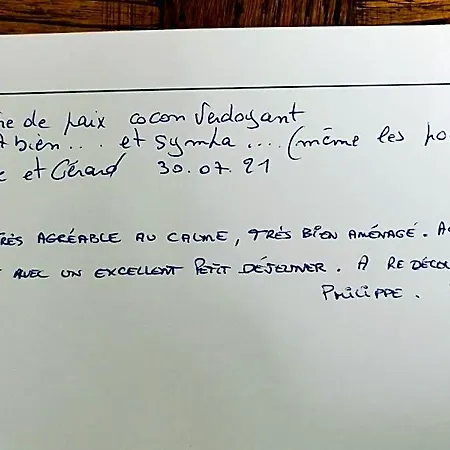 de paix cocon verdoyant
bien... et sympa .... (même les
et Gérard 30.07.21
TRÈS AGRÉABLE AU CALME, TRÈS BIEN AMÉNAGÉ.
AVEC UN EXCELLENT PETIT DÉJEUNER. A
PHILIPPE.